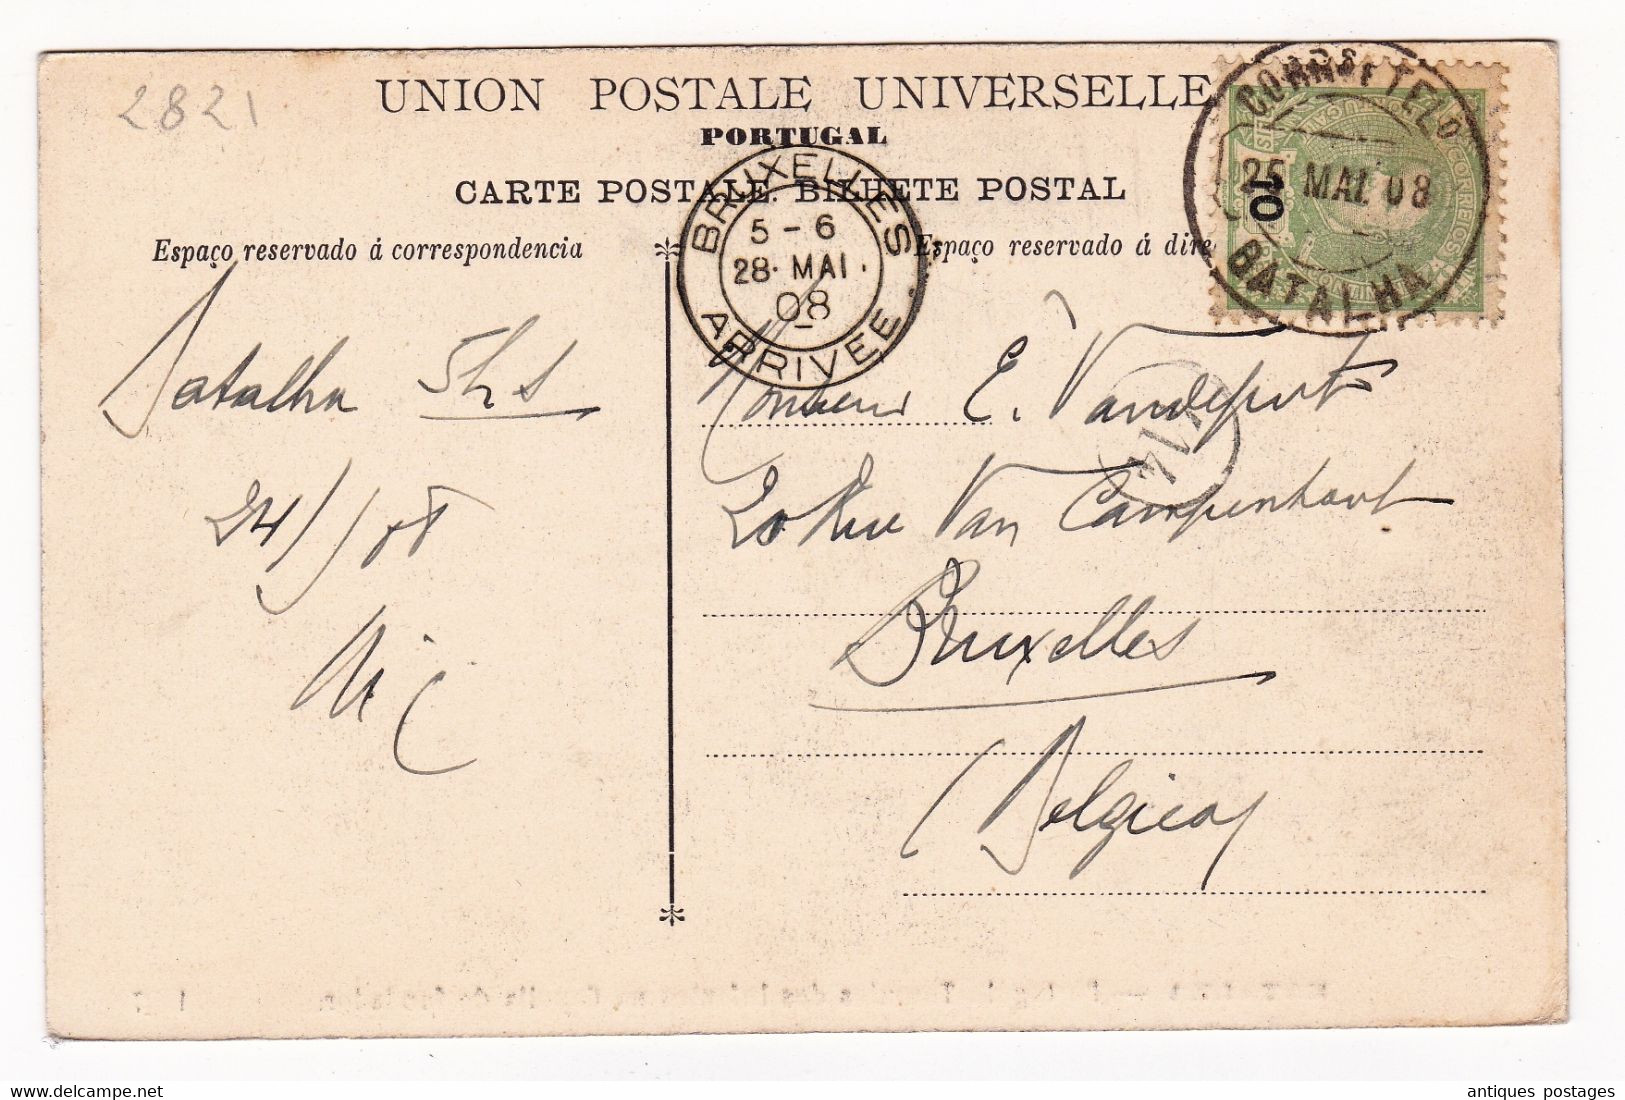 2821
UNION POSTALE UNIVERSELLE
PORTUGAL
CARTE POSTALE. BILHETE POSTAL
Espaço reservado á correspondencia
Espaço reservado á dire
BRUXELLES
5 - 6
28. MAI.
08
ARRIVEE
CORR. E TELO
25 MAI. 08
BATALHA
10
CORREIOS
Batalha 5h s
24/ /08
Monsieur E. Vandeputs
20 Rue Van Campenhout
Bruxelles
(Belgica)
https://www.delcampe.net
antiques postages